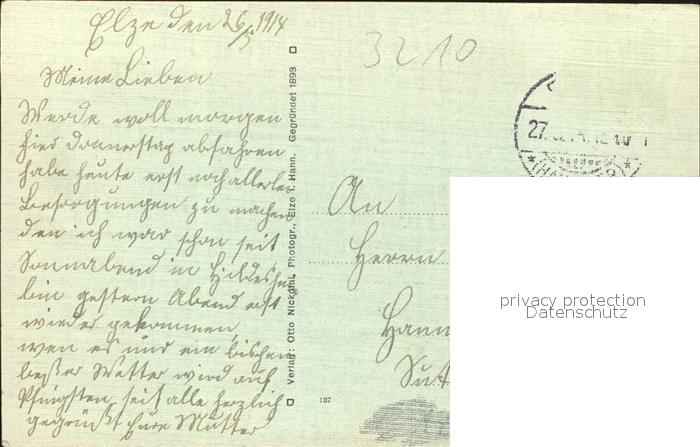 Elze den 26/5 1914
Meine Lieben
Werde woll morgen
hier Donnerstag abfahren
habe heute erst noch allerlei
Besorgungen zu machen
den ich war schon seit
Sonnabend in Hildesheim
bin gestern Abend erst
wieder gekommen,
wen es nur ein bischen
beßer Wetter wird auf
Pfingsten, seit alle herzlich
gegrüßt Eure Mutter
Verlag: Otto Nickohl, Photogr., Elze i. Hann. Gegründet 1893
3210
27.
An
Herrn
Hann
187
privacy protection
Datenschutz